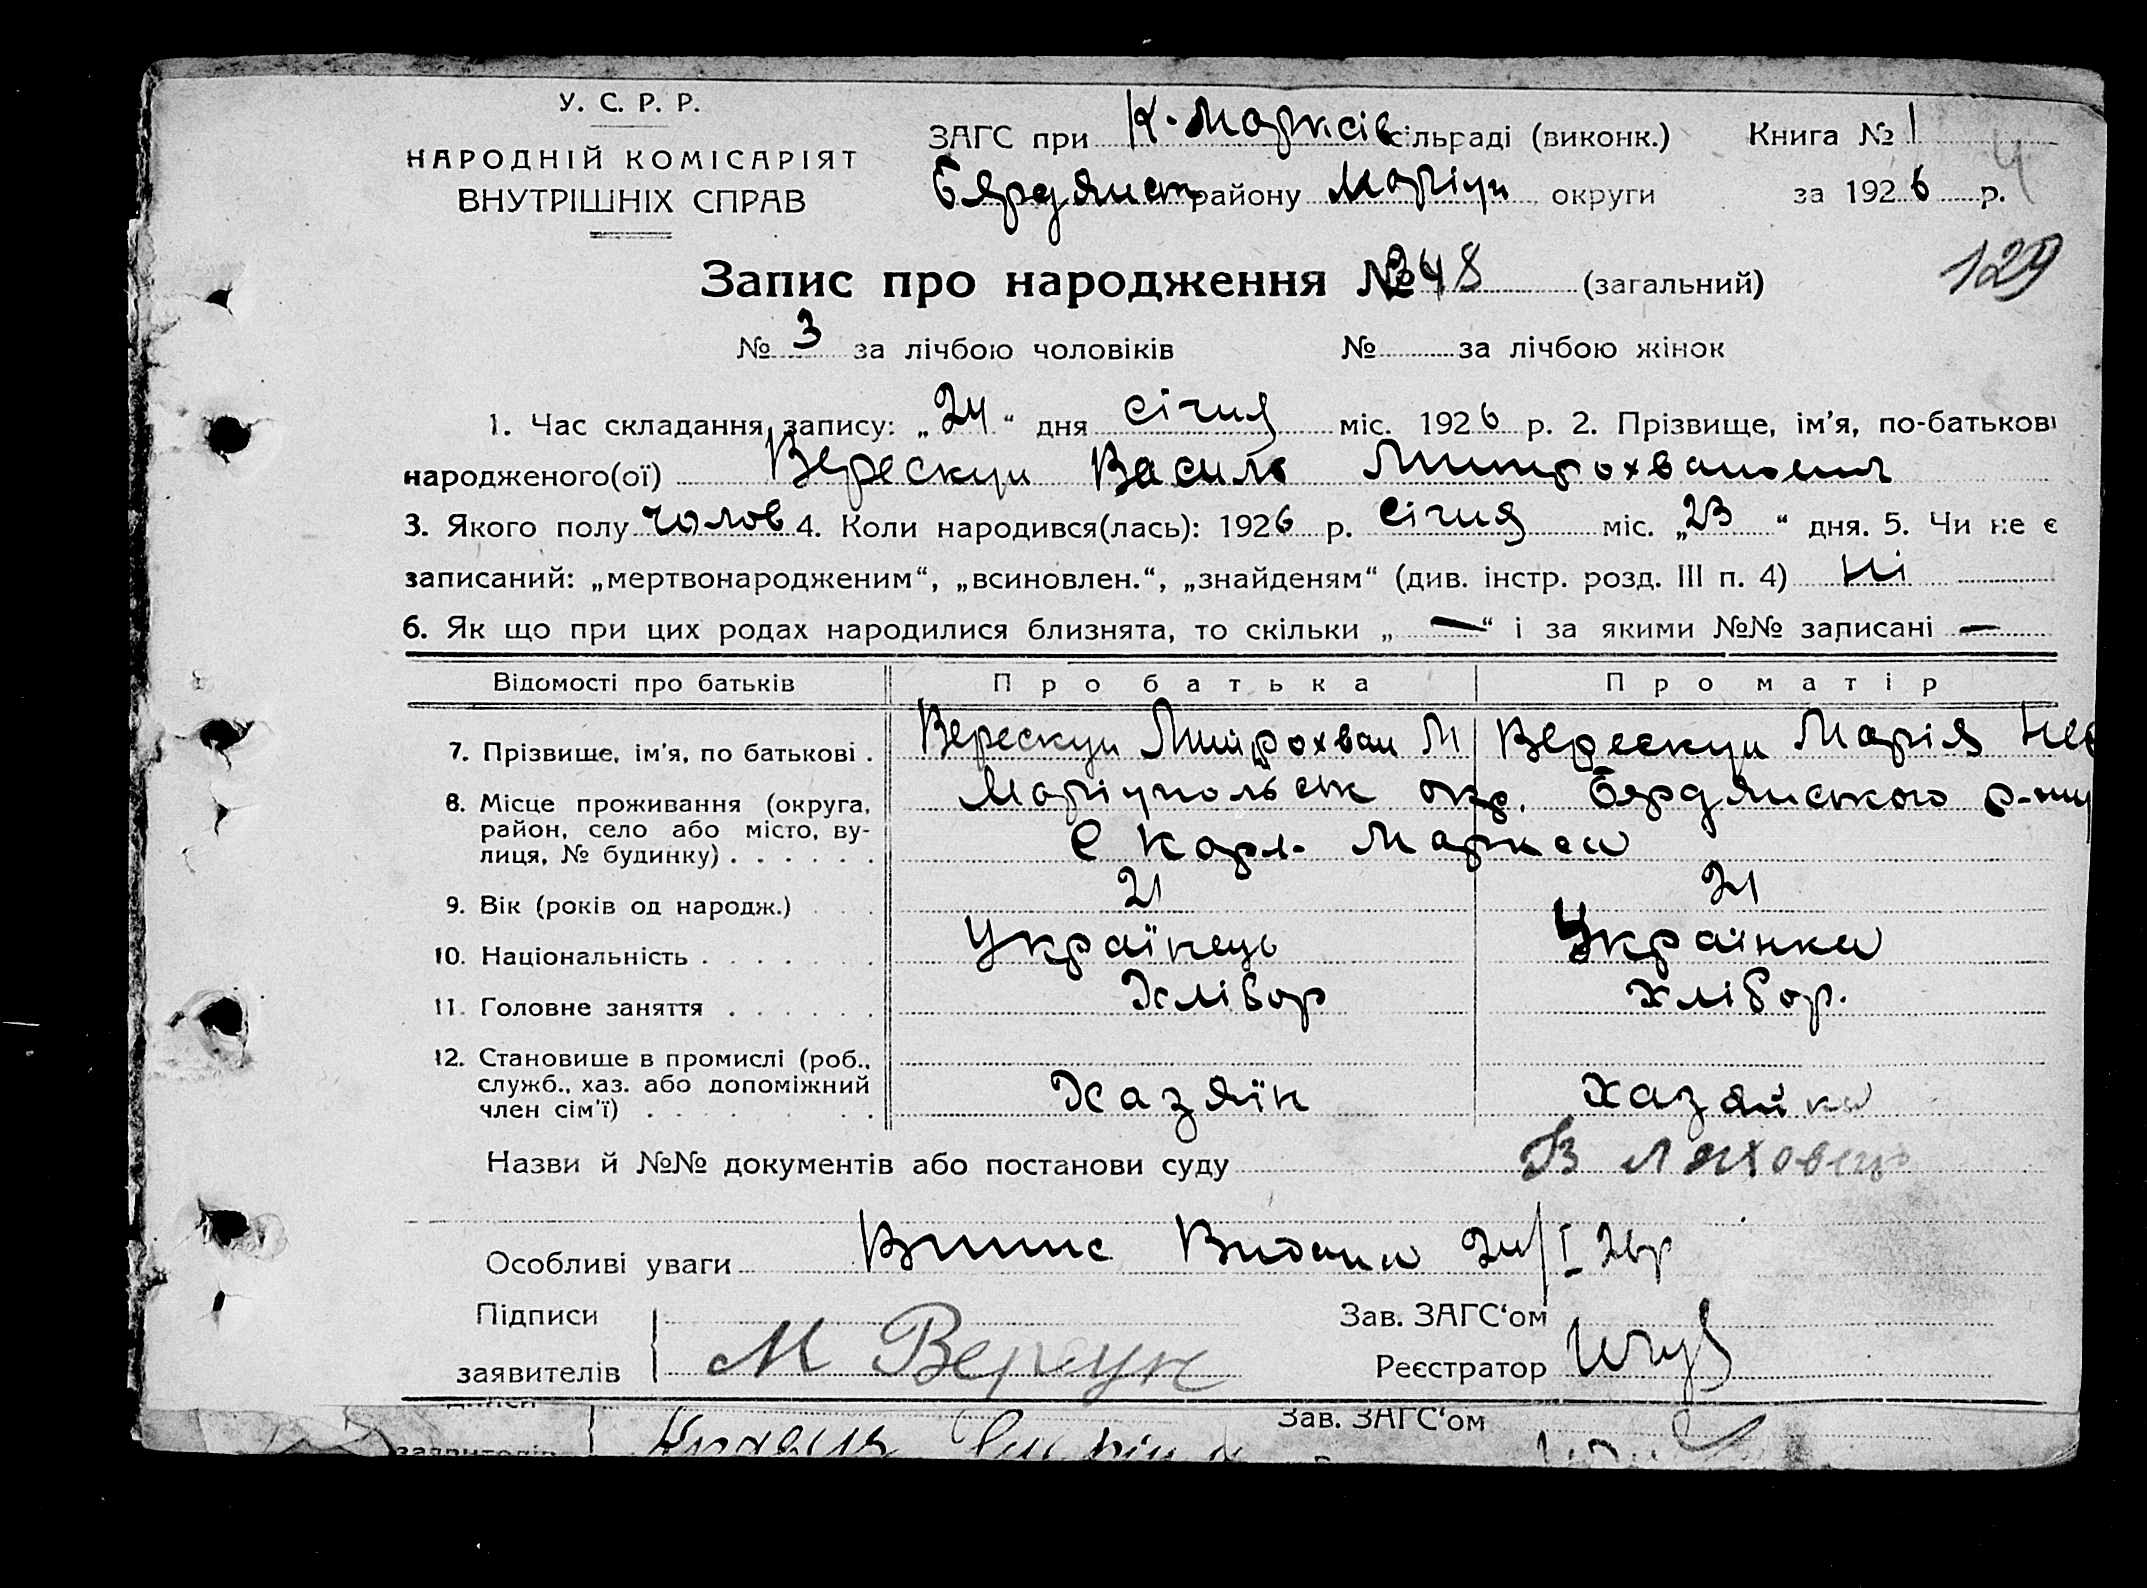 У. С. Р. Р.
НАРОДНІЙ КОМІСАРІЯТ
ВНУТРІШНІХ СПРАВ
ЗАГС при К. Марксів сільраді (виконк.) Книга № 1
Бярдянськ району Маріуп округи за 1926 р. 4
Запис про народження № 48 (загальний) 129
№ 3 за лічбою чоловіків № за лічбою жінок
1. Час складання запису: „24“ дня січня міс. 1926 р. 2. Прізвище, ім'я, по-батькові
народженого(ої) Верескун Василь Митрохванович
3. Якого полу чолов 4. Коли народився(лась): 1926 р. січня міс. „23“ дня. 5. Чи не є
записаний: „мертвонародженим“, „всиновлен.“, „знайденям“ (див. інстр. розд. III п. 4) ні
6. Як що при цих родах народилися близнята, то скільки „—“ і за якими №№ записані —
Відомості про батьків Про батька Про матір
7. Прізвище, ім'я, по батькові . Верескун Митрохван М Верескун Марія
8. Місце проживання (округа, Маріупольськ окр. Бярдянського р-ну
район, село або місто, ву-
лиця, № будинку) . . . . . . С Карл. Маркса
9. Вік (років од народж.) 21 21
10. Національність . . . . . . . Українець Українка
11. Головне заняття . . . . . . Хлібор хлібор.
12. Становище в промислі (роб.,
служб., хаз. або допоміжний
член сім'ї) . . . . . . . . Хазяїн хазяйка
Назви й №№ документів або постанови суду В Ляховець
Особливі уваги Випис Видана 24/I 26р
Підписи Зав. ЗАГС‘ом
заявителів М Верскун Реєстратор
Зав. ЗАГС‘ом
заявителів